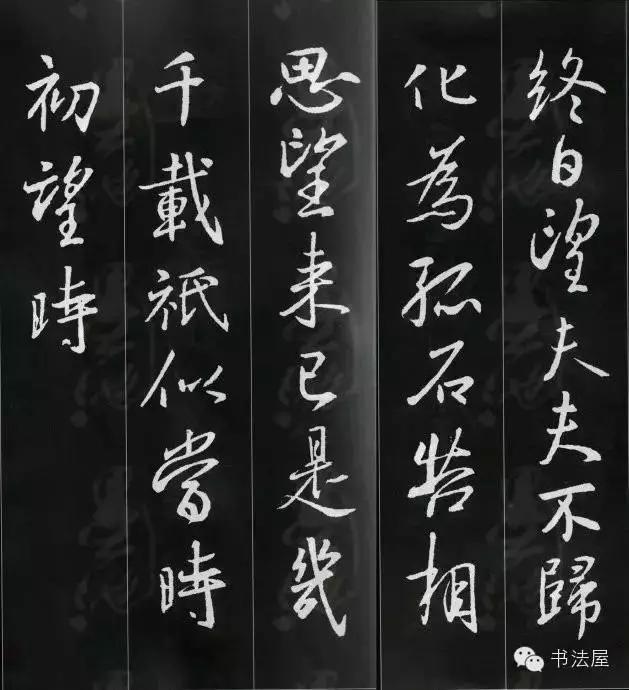 終日望夫夫不歸
化為孤石苦相
思望来已是幾
千載祇似當時
初望時
书法屋